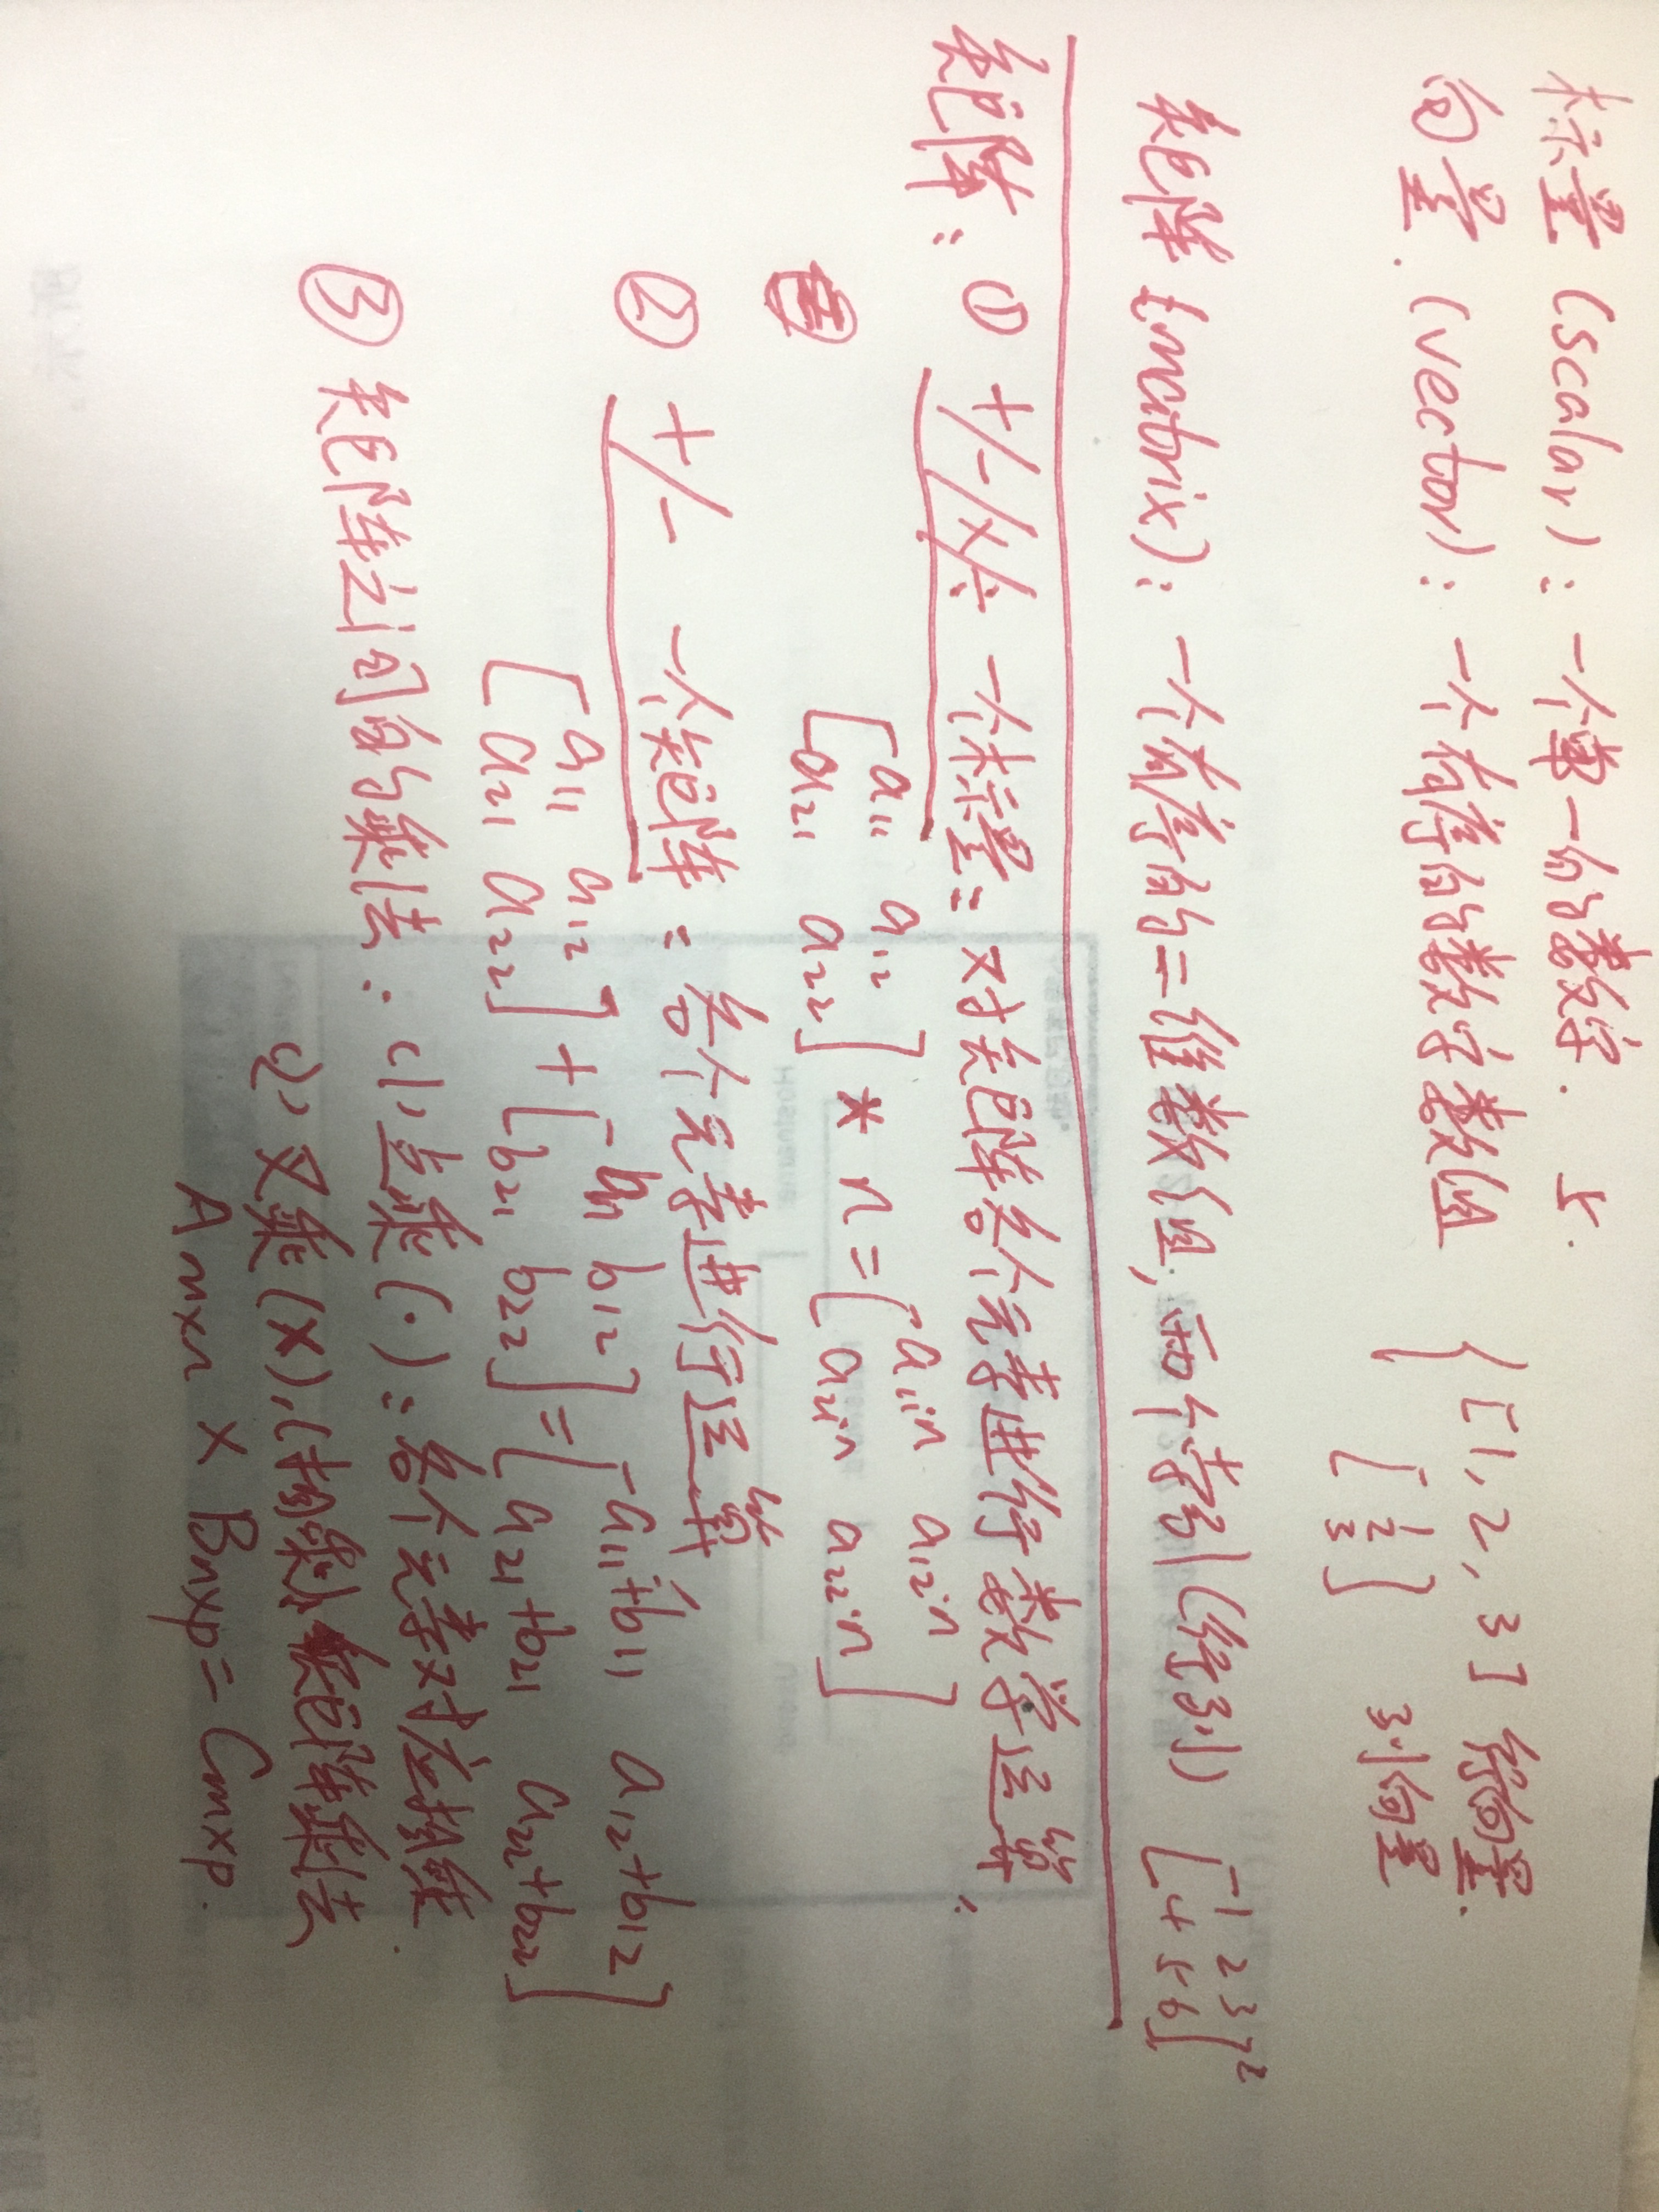 标量 (scalar): 一个单一的数字. 5.
向量. (vector): 一个有序的数字数值 { [1, 2, 3] 行向量.
[1 2 3] 列向量
矩阵 (matrix): 一个有序的二维数值, 两个索引 (行列) [1 2 3
4 5 6]
矩阵: ① +/-/×/÷ 一个标量: 对矩阵各个元素进行数学运算.
[a11 a12
a21 a22] * n = [a11·n a12·n
a21·n a22·n]
② +/- 一个矩阵: 各个元素进行运算
[a11 a12
a21 a22] + [b11 b12
b21 b22] = [a11+b11 a12+b12
a21+b21 a22+b22]
③ 矩阵之间的乘法: (1) 点乘 (·): 各个元素对应相乘.
(2) 叉乘 (×), 矩阵乘法
Amxn × Bnxp = Cmxp.